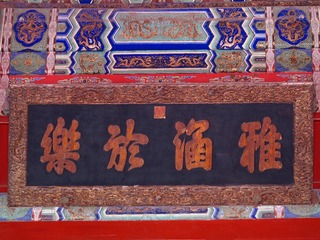 雅涵於樂